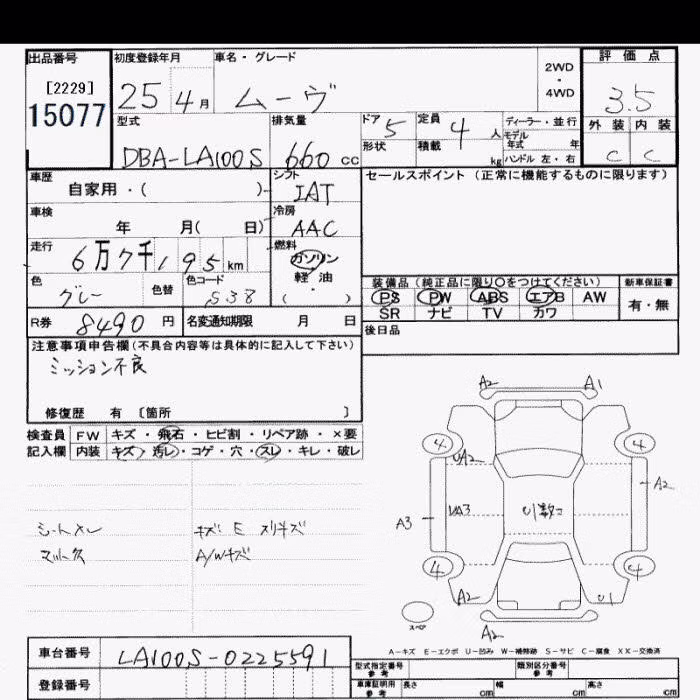 出品番号 初度登録年月 車名・グレード 評価点
[2229] 25 4月 ムーヴ 2WD・4WD 3.5
15077
型式 排気量 ドア 5 定員 4人 ディーラー・並行 外装 内装
モデル年式 年
DBA-LA100S 660cc 形状 積載 kg ハンドル 左・右 C C
車歴 シフト セールスポイント（正常に機能するものに限ります）
自家用・( ) IAT
車検 冷房
年 月( 日) AAC
走行 燃料
6万7千195km ガソリン
色 色替 色コード 軽・油 装備品（純正品に限り○をつけてください） 新車保証書
グレー S38 ( ) PS PW ABS エアB AW 有・無
R券 8490円 名変通知期限 月 日 SR ナビ TV カワ
注意事項申告欄（不具合内容等は具体的に記入して下さい） 後日品
ミッション不良
修復歴 有 〔箇所 〕
検査員 FW キズ・飛石・ヒビ割・リペア跡・×要
記入欄 内装 キズ・汚レ・コゲ・穴・スレ・キレ・破レ
A2 A1
4 4
UA2 A2
A3 UA3
シートスレ キズ E スリキズ
マット欠 A/Wキズ
4 4
A2 U1
スペア A2
A-キズ E-エクボ U-凹み W-補修跡 S-サビ C-腐食 XX-交換済
車台番号 LA100S-0225591
型式指定番号 参考 類別区分番号 参考
登録番号 車庫証明用 参考 長さ cm 幅 cm 高さ cm